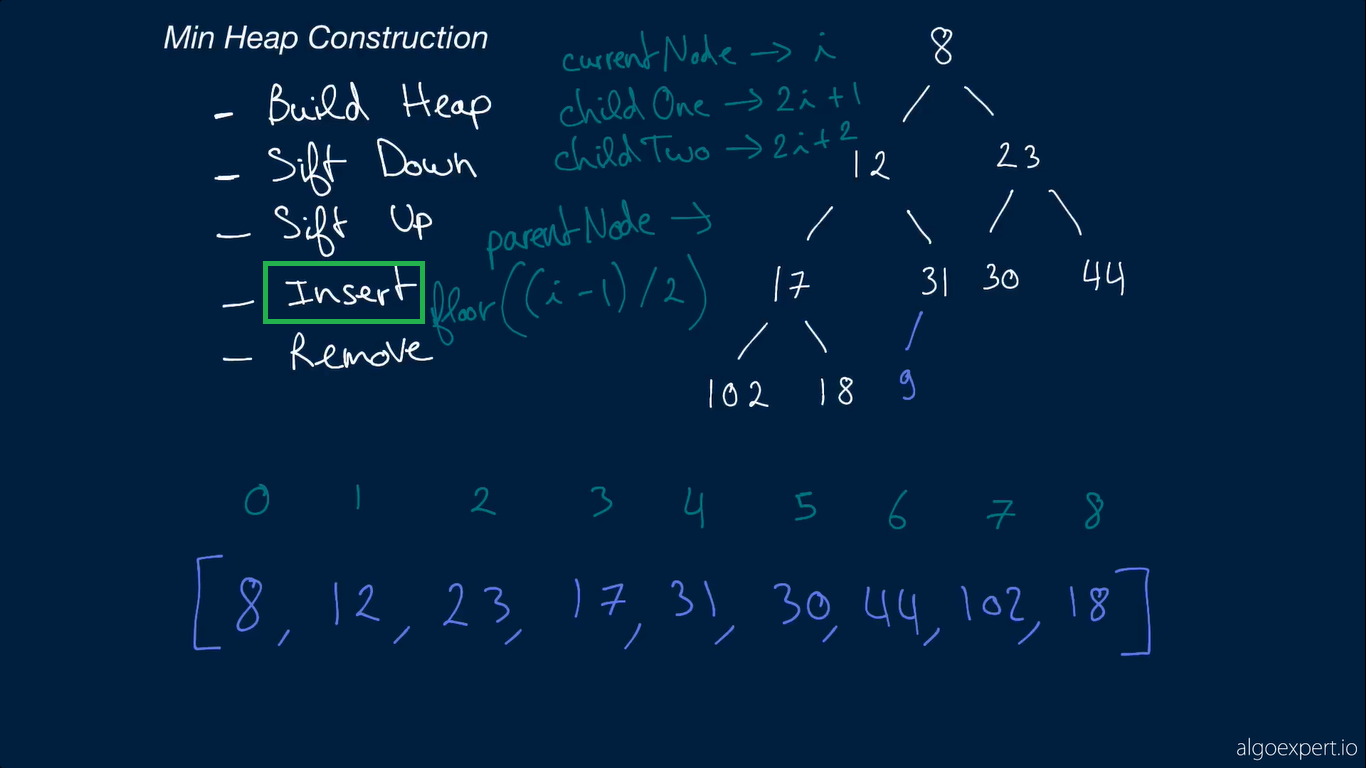 Min Heap Construction
- Build Heap
- Sift Down
- Sift Up
- Insert
- Remove
currentNode → i
childOne → 2i+1
childTwo → 2i+2
parentNode →
floor((i-1)/2)
8
12 23
17 31 30 44
102 18 9
0 1 2 3 4 5 6 7 8
[8, 12, 23, 17, 31, 30, 44, 102, 18]
algoexpert.io